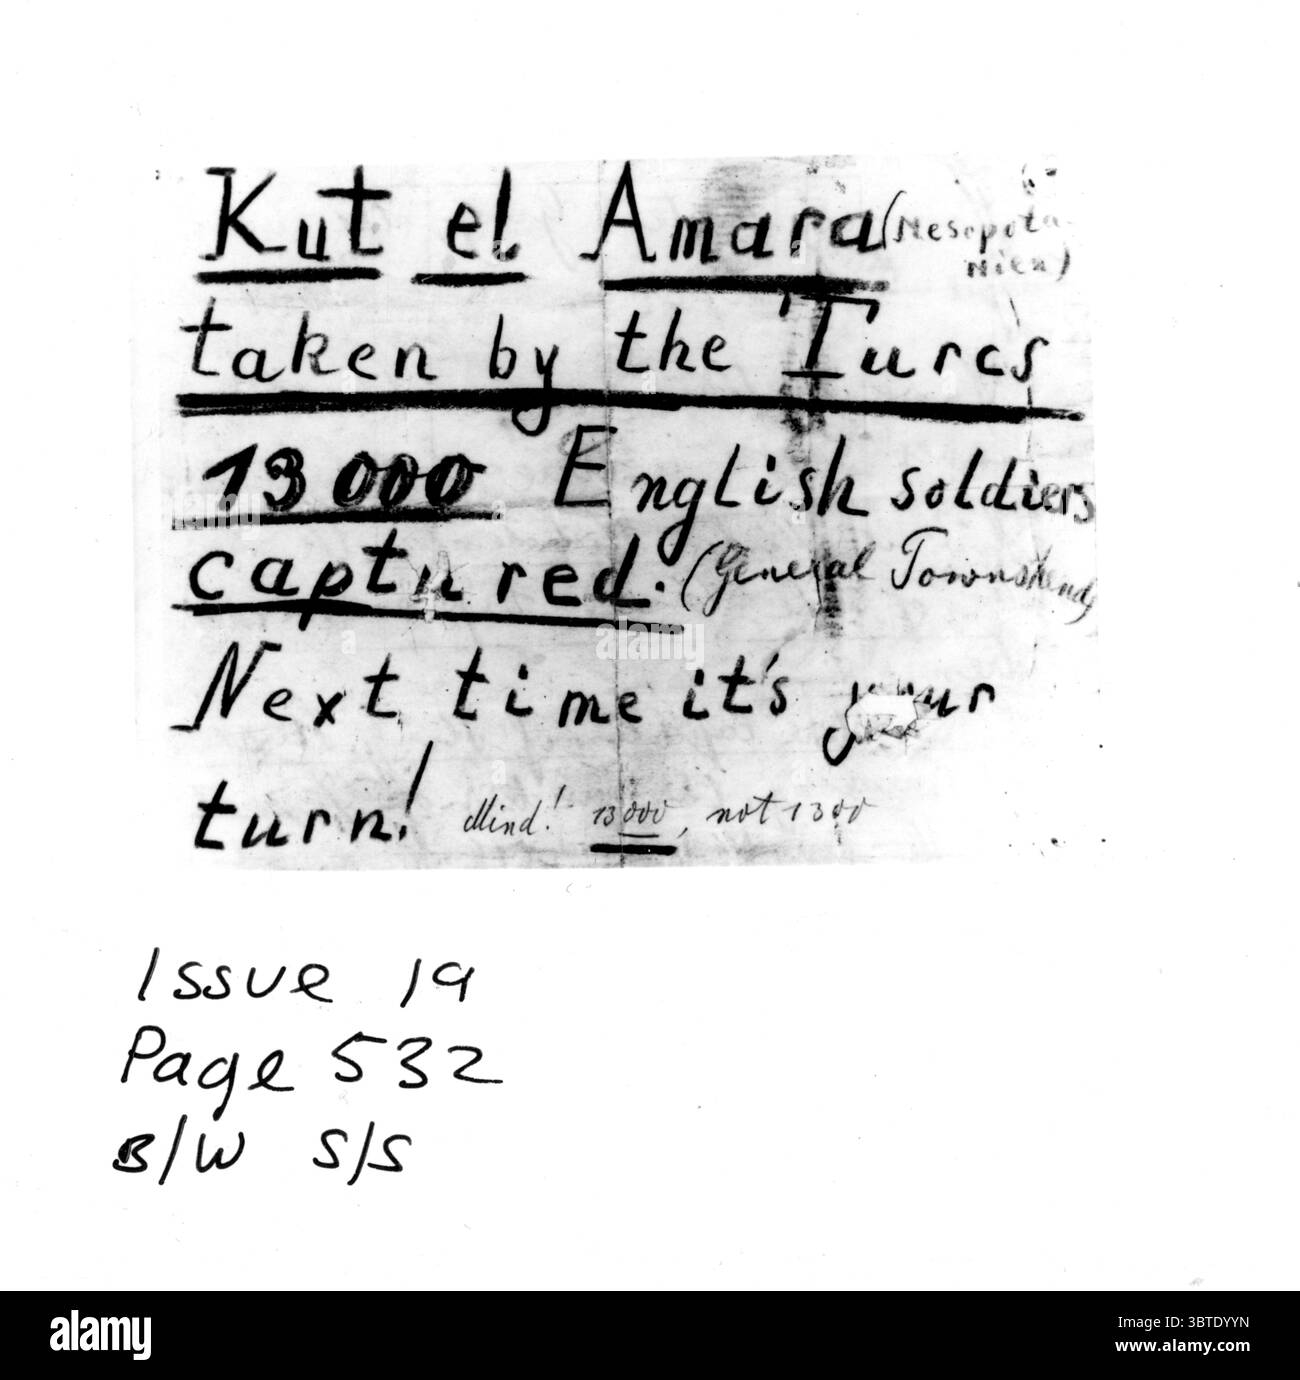 Kut el Amara (Mesopota-
nien)
taken by the Turcs
13000 English soldiers
captured. (General Townshend)
Next time it's your
turn! Mind! 13000, not 1300
Issue 19
Page 532
B/W S/S
alamy
Image ID: 3BTDYYN
www.alamy.com